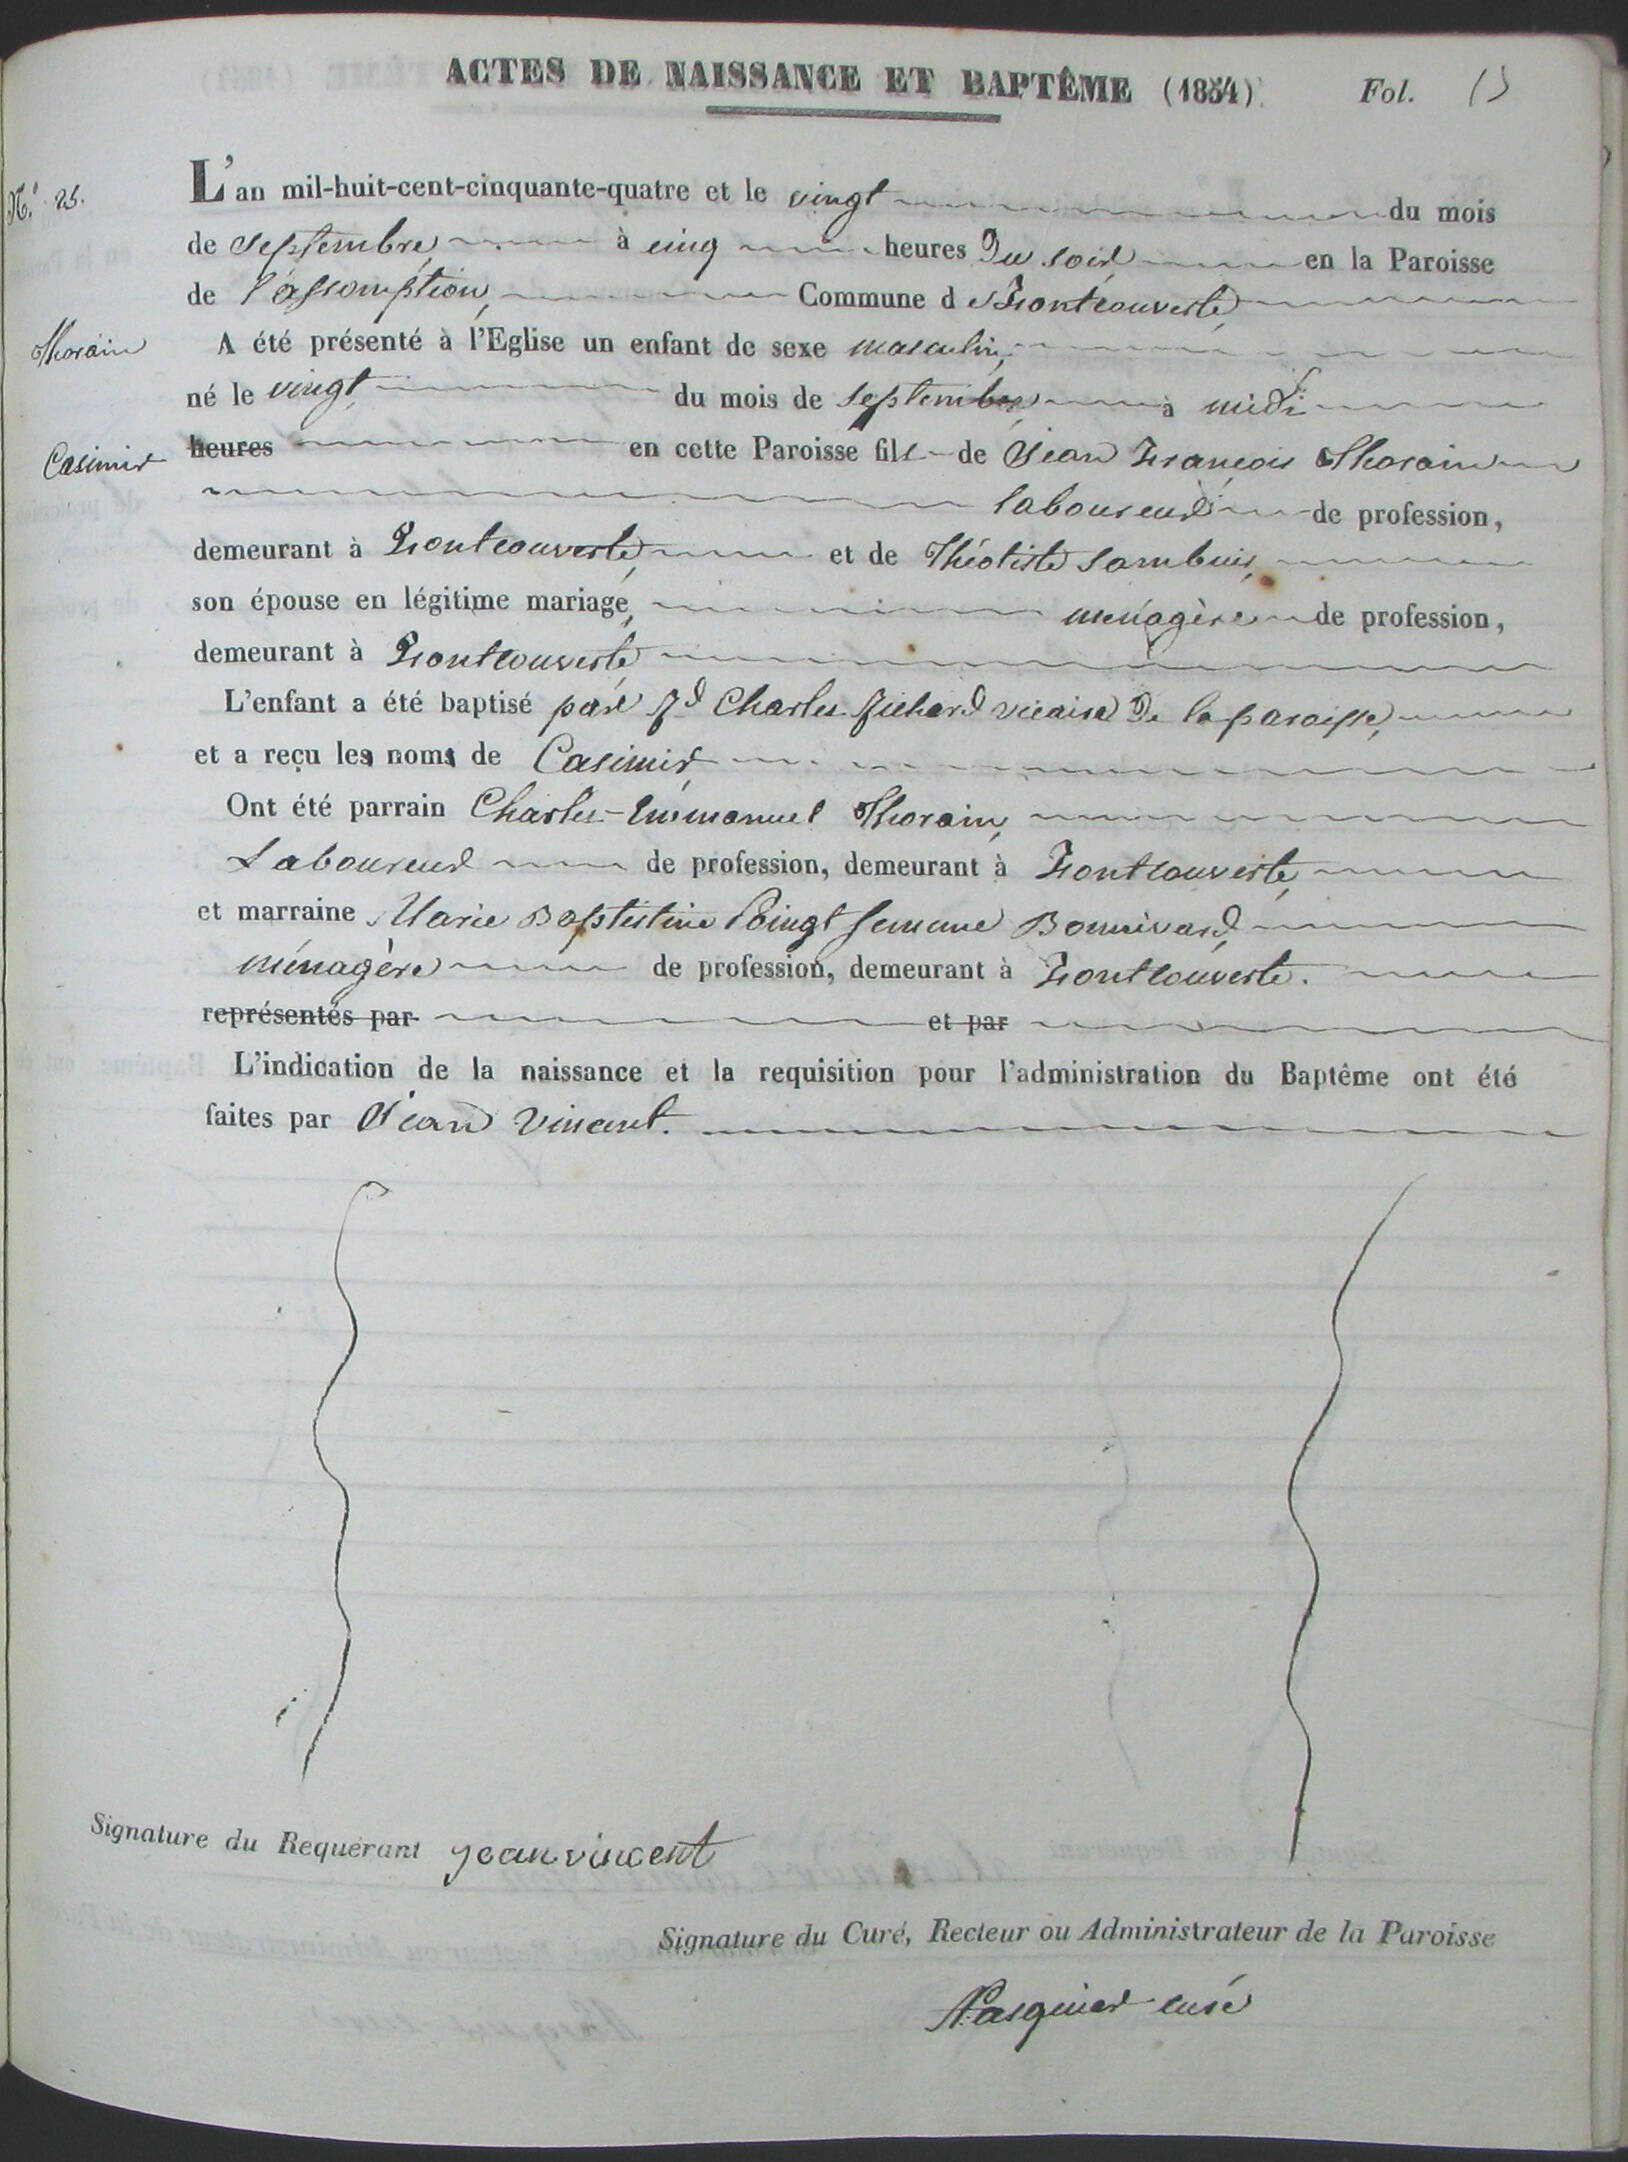 ACTES DE NAISSANCE ET BAPTÊME (1854) Fol. 13
N.° 25.
L'an mil-huit-cent-cinquante-quatre et le vingt du mois
de septembre, à cinq heures du soir en la Paroisse
de l'assomption, Commune de Fontcouverte,
Thorain
A été présenté à l'Eglise un enfant de sexe masculin,
né le vingt du mois de septembre à midi
Casimir
heures en cette Paroisse fils de Jean François Thorain
laboureur de profession,
demeurant à Fontcouverte, et de Théotiste Sambuis,
son épouse en légitime mariage, ménagère de profession,
demeurant à Fontcouverte,
L'enfant a été baptisé par Rd Charles Richard vicaire de la paroisse,
et a reçu les noms de Casimir
Ont été parrain Charles-Emmanuel Thorain,
Laboureur de profession, demeurant à Fontcouverte,
et marraine Marie Baptistine Poingt femme Bonnivard,
ménagère de profession, demeurant à Fontcouverte.
représentés par et par
L'indication de la naissance et la requisition pour l'administration du Baptême ont été
faites par Jean Vincent.
Signature du Requérant jean vincent
Signature du Curé, Recteur ou Administrateur de la Paroisse
Pasquier curé